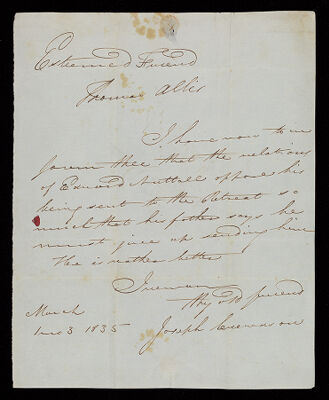 Esteemed Friend
Thomas Allis
I have now to in
form thee that the relations
of Edward Nuttall oppose his
being sent to the Retreat so
much that his father says he
must give up sending him
He is rather better
I remain
thy old friend
March
1835
Joseph